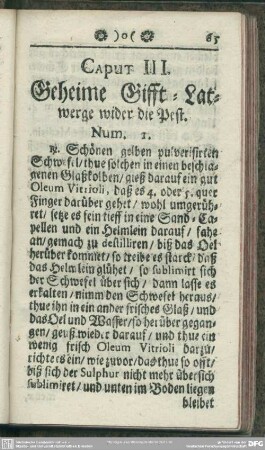 )o( 65
CAPUT III.
Geheime Gifft-Lat-
werge wider die Pest.
Num. 1.
Schönen gelben pulverisirten
Schwefel/ thue solchen in einen beschla-
genen Glaßkolben/ gieß darauf ein gut
Oleum Vitrioli, daß es 4. oder 5. quer
Finger darüber gehet/ wohl umgerüh-
ret/ setze es fein tieff in eine Sand-Ca-
pellen und ein Helmlein darauf/ fahe
an/ gemach zu destilliren/ biß das Oel
herüber kommet/ so treibe es starck/ daß
das Helmlein glühet/ so sublimirt sich
der Schwefel über sich/ dann lasse es
erkalten/ nimm den Schwefel heraus/
thue ihn in ein ander frisches Glaß/ und
das Oel und Wasser/ so herüber gegan-
gen/ geuß wieder darauf/ und thue ein
wenig frisch Oleum Vitrioli darzu/
richte es ein/ wie zuvor/ das thue so offt/
biß sich der Sulphur nicht mehr über sich
sublimiret/ und unten im Boden liegen
bleibet
DFG